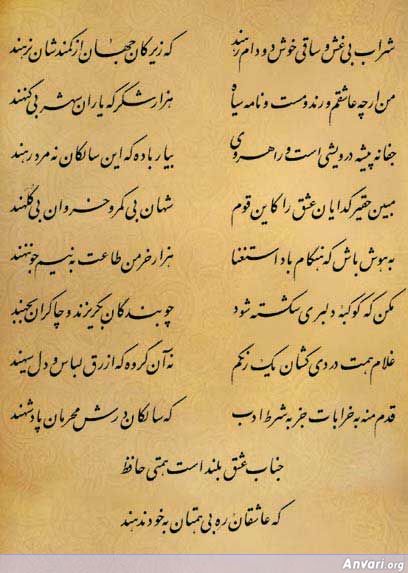 شراب بی غش و ساقی خوش دو دام رهند که زیرکان جهان از کمندشان نرهند
من ار چه عاشقم و رند و مست و نامه سیاه هزار شکر که یاران شهر بی گنهند
جفا نه پیشه درویشی است و راهروی بیار باده که این سالکان نه مرد رهند
مبین حقیر گدایان عشق را کاین قوم شهان بی کمر و خسروان بی کلهند
به هوش باش که هنگام باد استغنا هزار خرمن طاعت به نیم جو ننهند
مکن که کوکبهٔ دلبری شکسته شود چو بندگان بگریزند و چاکران بجهند
غلام همت دردی کشان یک رنگم نه آن گروه که ازرق لباس و دل سیهند
قدم منه به خرابات جز به شرط ادب که سالکان درش محرمان پادشهند
جناب عشق بلند است همتی حافظ
که عاشقان ره بی همتان به خود ندهند
Anvari.org